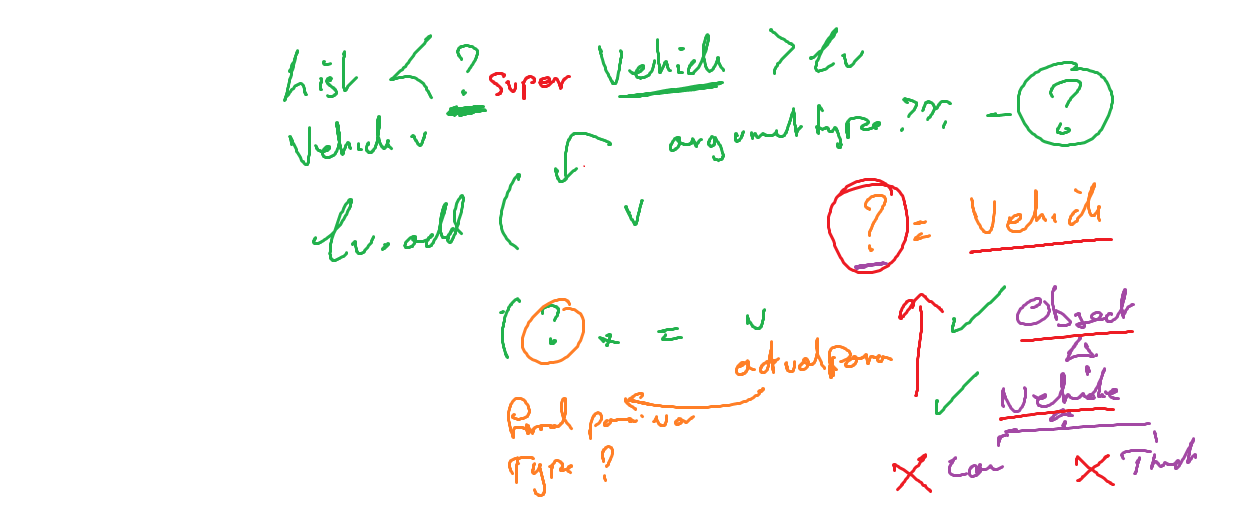 List < ? super Vehicle > lv
Vehicle v
argument type ??
- ?
lv.add ( v
? = Vehicle
( ? x = v
actual param
Type ?
✓ Object
✓ Vehicle
X Car X Truck